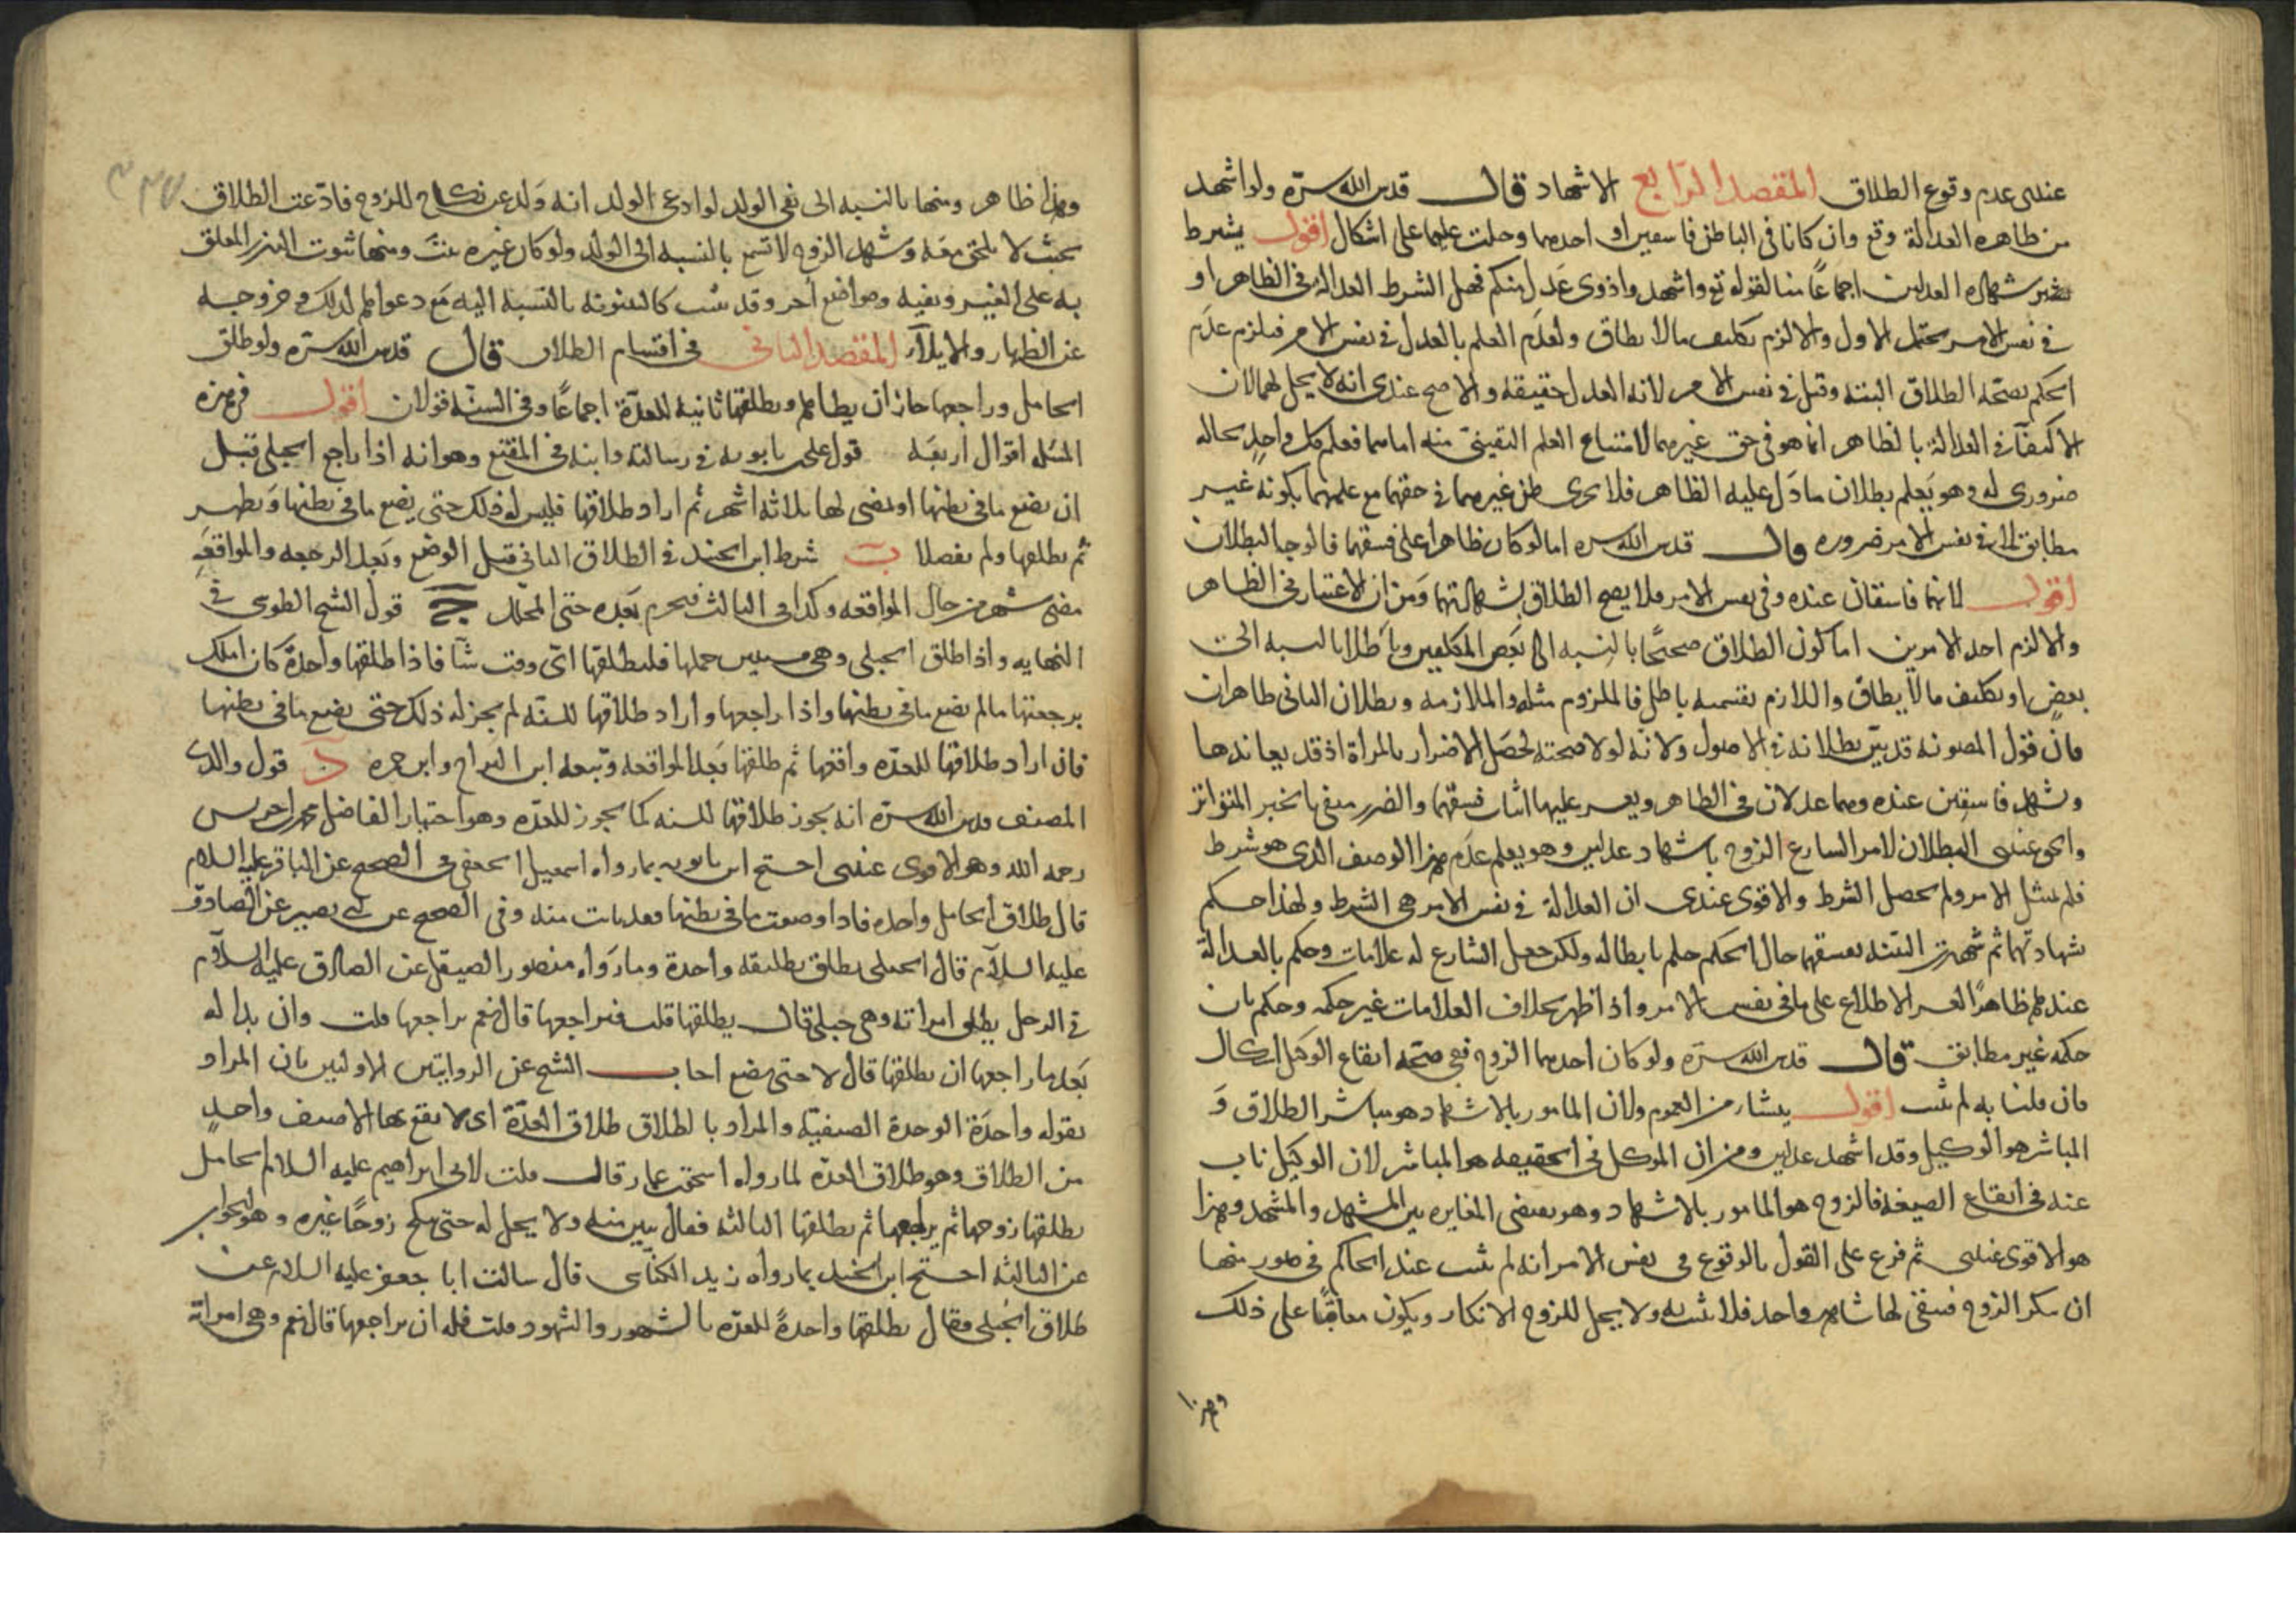 عندى عدم وقوع الطلاق المقصد الرابع الاشهاد قال قدس الله سره ولو اشهد
من ظاهره العدالة وقع وان كانا فى الباطن فاسقين او احدهما وحلت عليهما على اشكال اقول يشترط
شهادة العدلين اجماعًا منا لقوله تع واشهدوا ذوى عدل منكم فهل الشرط العدالة فى الظاهر او
فى نفس الامر يحتمل الاول والا لزم تكليف ما لا يطاق ولعدم العلم بالعدل فى نفس الامر فيلزم عدم
الحكم بصحة الطلاق البتة وقيل فى نفس الامر لانه العدل حقيقة والاصح عندى انه لا يحل لهما لان
الاكتفآء فى العدالة بالظاهر انما هو فى حق غيرهما لامتناع العلم اليقينى منه اما هما فعلم كل واحد بحاله
ضرورى له وهو يعلم بطلان ما دل عليه الظاهر فلا يجرى ظن غيرهما فى حقهما مع علمهما بكونه غير
مطابق لما فى نفس الامر ضرورة قال قدس الله سره اما لو كان ظاهرا على فسقهما فالوجه البطلان
اقول لانهما فاسقان عنده وفى نفس الامر فلا يصح الطلاق بشهادتهما ومن ان الاعتبار فى الظاهر
والا لزم احد الامرين اما كون الطلاق صحيحًا بالنسبه الى بعض المكلفين وباطلا بالنسبه الى
بعض او تكليف ما لا يطاق واللازم بقسميه باطل فالملزوم مثله والملازمه وبطلان الثانى ظاهران
فان قول المصوبة قد بيّن بطلانه فى الاصول ولانه لولا صحته لحصل الاضرار بالمراة اذ قد يعاندها
ويشهد فاسقين عنده وهما عدلان فى الظاهر ويعسر عليها اثبات فسقهما والضرر منفى بالخبر المتواتر
والحق عندى البطلان لامر الشارع الزوج باشهاد عدلين وهو يعلم عدم هذا الوصف الذى هو شرط
فلم يمتثل الامر ولم يحصل الشرط والاقوى عندى ان العدالة فى نفس الامر هى الشرط ولهذا حكم
شهادتهما ثم شهدت البينه بفسقهما حال الحكم حكم بابطاله ولكن جعل الشارع له علامات وحكم بالعدالة
عندهم ظاهرًا لعسر الاطلاع على ما فى نفس الامر واذا ظهر بخلاف العلامات غير حكمه وحكم بان
حكمه غير مطابق قال قدس الله سره ولو كان احدهما الزوج ففى صحة ايقاع الوكيل اشكال
فان قلنا به لم يثبت اقول ينشا من العموم ولان المامور بالاشهاد هو مباشر الطلاق و
المباشر هو الوكيل وقد اشهد عدلين ومن ان الموكل فى الحقيقة هو المباشر لان الوكيل نايب
عنه فى ايقاع الصيغة فالزوج هو المامور بالاشهاد وهو يقتضى المغايره بين المشهد والمشهد وهذا
هو الاقوى عندى ثم فرع على القول بالوقوع فى نفس الامر انه لم يثبت عند الحاكم فى صور منها
ان ينكر الزوج فيبقى لها شاهد واحد فلا يثبت به ولا يحل للزوج الانكار ويكون معاقبًا على ذلك
وهذا
وهذا ظاهر ومنها بالنسبه الى نفى الولد لو ادعى الولد انه ولد عن نكاح للزوج فادعت الطلاق
بحيث لا يلحق معه وشهد الزوج لا تسمع بالنسبه الى الولد ولو كان غيره ثبت ومنها ثبوت النذر المعلق
به على الغير ونفيه ومواضع أخر وقد يثبت كالبينونة بالنسبة اليه مع دعواهم لذلك وخروجه
عن الظهار والايلآء المقصد الثانى فى اقسام الطلاق قال قدس الله سره ولو طلق
الحامل وراجعها جاز ان يطأها ويطلقها ثانية للعدة اجماعًا وفى السنة قولان اقول فى هذه
المسئله اقوال اربعة قول على بن بابويه فى رسالته وابنه فى المقنع وهو انه اذا راجع الحبلى قبل
ان تضع ما فى بطنها او يمضى لها ثلاثه اشهر ثم اراد طلاقها فليس له ذلك حتى تضع ما فى بطنها وتطهر
ثم يطلقها ولم يفصلا ب شرط ابن الجنيد فى الطلاق الثانى قبل الوضع وبعد الرجعه والمواقعه
مضى شهر من حال المواقعه وكذا فى الثالث فتحرم بعده حتى المحلل ج قول الشيخ الطوسى فى
النهايه واذا طلق الحبلى وهى مستبين حملها فليطلقها اى وقت شآء فاذا طلقها واحدة كان املك
برجعتها ما لم تضع ما فى بطنها واذا راجعها واراد طلاقها للسنه لم يجز له ذلك حتى تضع ما فى بطنها
فان اراد طلاقها للعده واقعها ثم طلقها بعد المواقعه وتبعه ابن البراج وابن حمزه د قول والدى
المصنف قدس الله سره انه يجوز طلاقها للسنه كما يجوز للعده وهو اختيار الفاضل محمد بن ادريس
رحمه الله وهو الاقوى عندى احتج ابن بابويه بما رواه اسمعيل الجعفى فى الصحيح عن الباقر عليه السلام
قال طلاق الحامل واحده فاذا وضعت ما فى بطنها فقد بانت منه وفى الصحيح عن ابى بصير عن الصادق
عليه السلام قال الحبلى تطلق تطليقه واحدة وما رواه منصور الصيقل عن الصادق عليه السلام
فى الرجل يطلق امراته وهى حبلى قال يطلقها قلت فيراجعها قال نعم يراجعها قلت وان بدا له
بعد ما راجعها ان يطلقها قال لا حتى تضع اجاب الشيخ عن الروايتين الاوليين بان المراد
بقوله واحدة الوحدة الصنفية والمراد بالطلاق طلاق العدة اى لا يقع بها الا صنف واحد
من الطلاق وهو طلاق العده لما رواه اسحق بن عمار قال قلت لابى ابراهيم عليه السلام الحامل
يطلقها زوجها ثم يراجعها ثم يطلقها الثالثه فقال تبين منه ولا يحل له حتى تنكح زوجًا غيره وهو الجواب
عن الثالثه احتج ابن الجنيد بما رواه يزيد الكناسى قال سالت ابا جعفر عليه السلام عن
طلاق الحبلى فقال يطلقها واحدة للعده بالشهور والشهود قلت فله ان يراجعها قال نعم وهى امراته